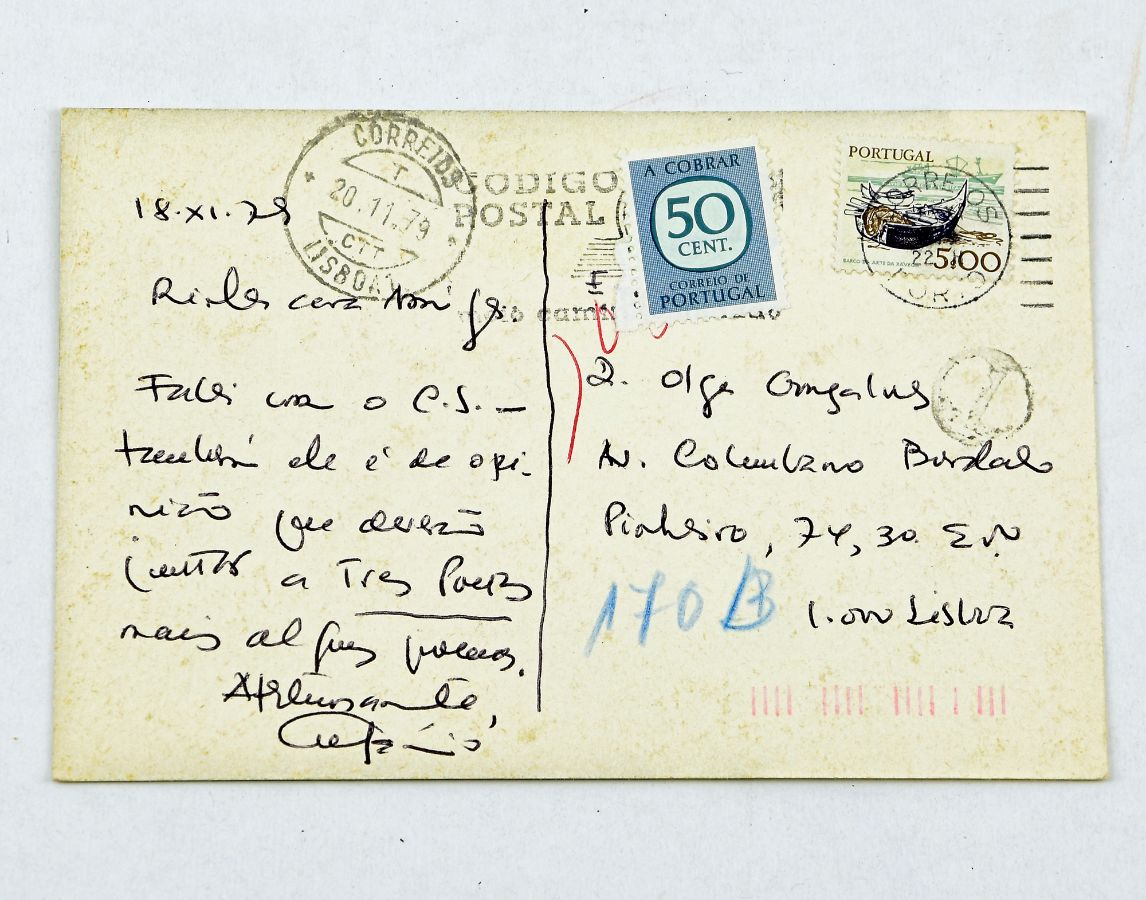 18.XI.79
cara
Falei com o C.S. —
também ele é de opi-
nião que deverão
juntar a Tres Poetas
mais alguns poemas.
Afectuosamente,
CORREIOS
T
20.11.79
CTT
LISBOA
CÓDIGO
POSTAL
A COBRAR
50
CENT.
CORREIO DE
PORTUGAL
PORTUGAL
BARCO DA ARTE DA XÁVEGA
5.00
CORREIOS
22
T
D. Olga Gonçalves
Av. Columbano Bordalo
Pinheiro, 74, 3o.
1.000 Lisboa
170 B